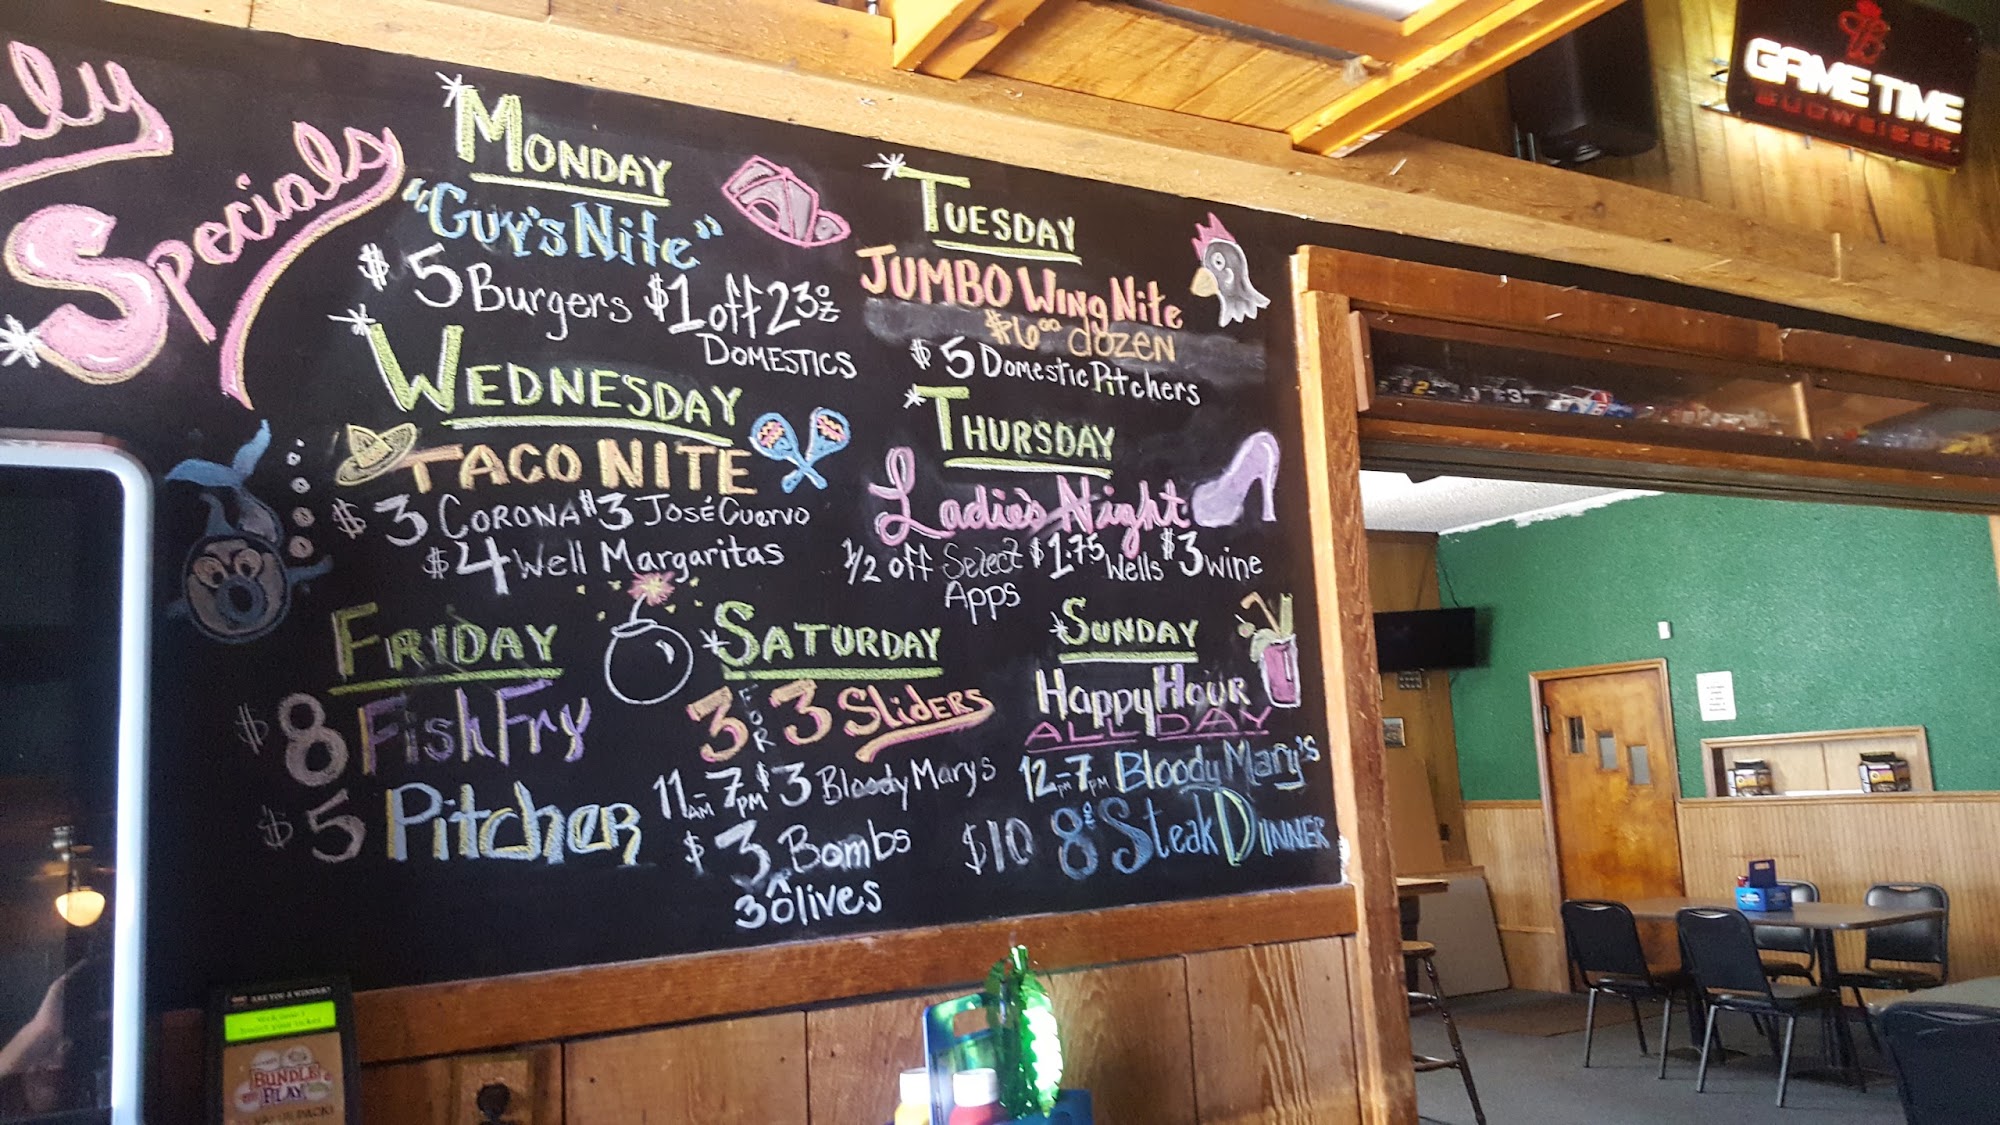 Specials
MONDAY
"Guy's Nite"
$5 Burgers $1 off 23oz
DOMESTICS
TUESDAY
JUMBO WING Nite
$6.00 dozen
$5 Domestic Pitchers
WEDNESDAY
TACO NITE
$3 CORONA $3 José Cuervo
$4 Well Margaritas
THURSDAY
Ladie's Night
1/2 off Select Apps $1.75 Wells $3 wine
FRIDAY
$8 Fish Fry
$5 Pitcher
SATURDAY
3 FOR 3 SlidERS
11AM-7PM $3 Bloody Marys
$3 Bombs
3 Olives
SUNDAY
Happy Hour
ALL DAY
12PM-7PM Bloody Mary's
$10 8oz Steak DINNER
GAME TIME
BUDWEISER
ARE YOU A WINNER?
BUNDLE
PLAY
2
3